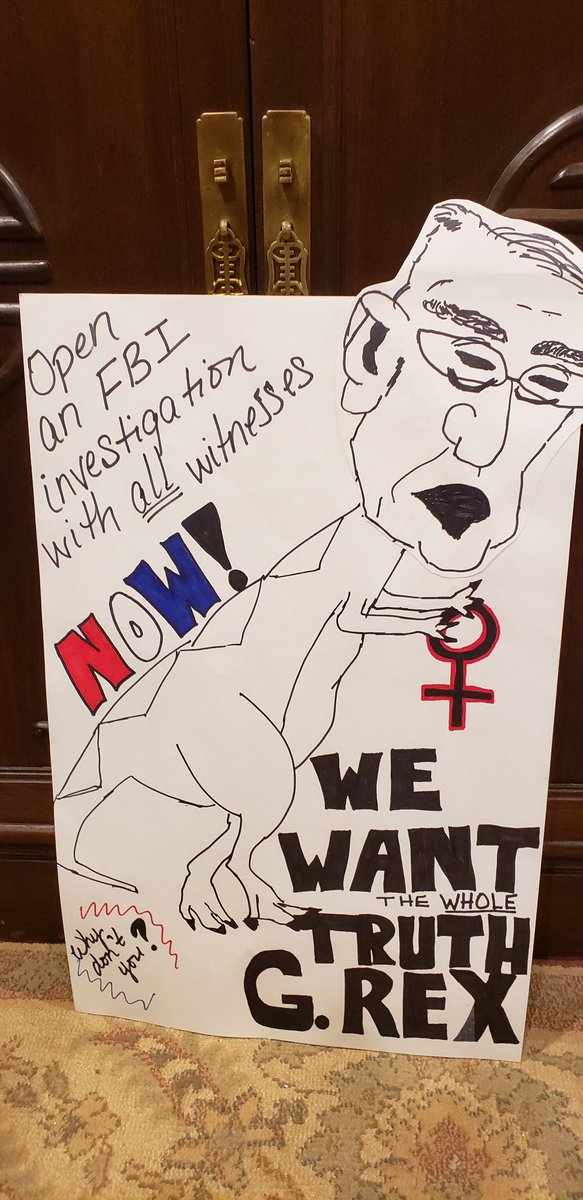 Open
an FBI
investigation
with all witnesses
NOW!
WE
WANT
THE WHOLE
TRUTH
G.REX
Why
don't
you?